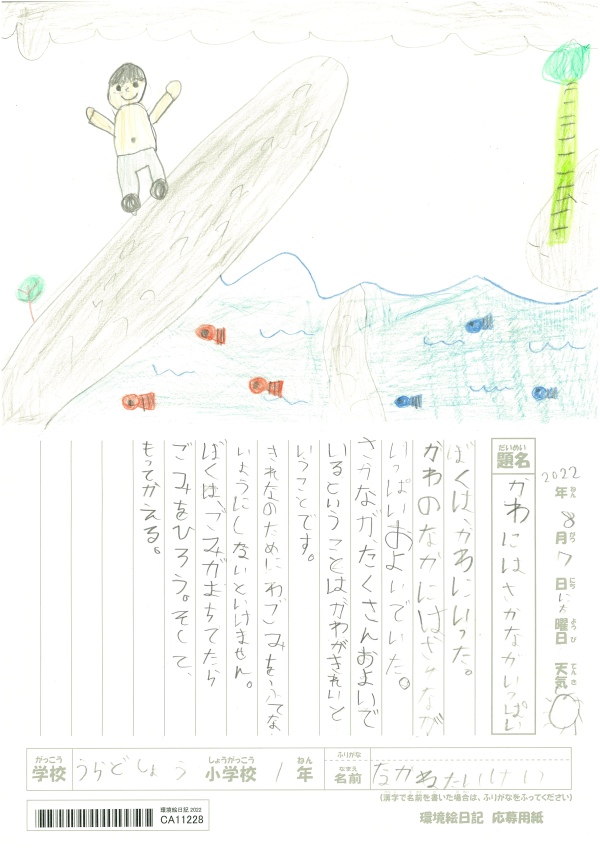 2022年8月7日にち曜日 天気
ねん がつ にち ようび てんき
だいめい
題名 かわにはさかながいっぱい
ぼくは、かわにいった。
かわのなかにはさかなが
いっぱいおよいでいた。
さかなが、たくさんおよいで
いるということはかわがきれいと
いうことです。
きれなのためにわごみをふてな
いようにしないといけません。
ぼくは、ごみがおちてたら
ごみをひろう。そして、
もってかえる。
がっこう しょうがっこう ねん ふりがな
学校 うらどしょう 小学校 1 年 なまえ 名前 なかねたいけい
(漢字で名前を書いた場合は、ふりがなをふってください)
環境絵日記 2022
CA11228
環境絵日記 応募用紙